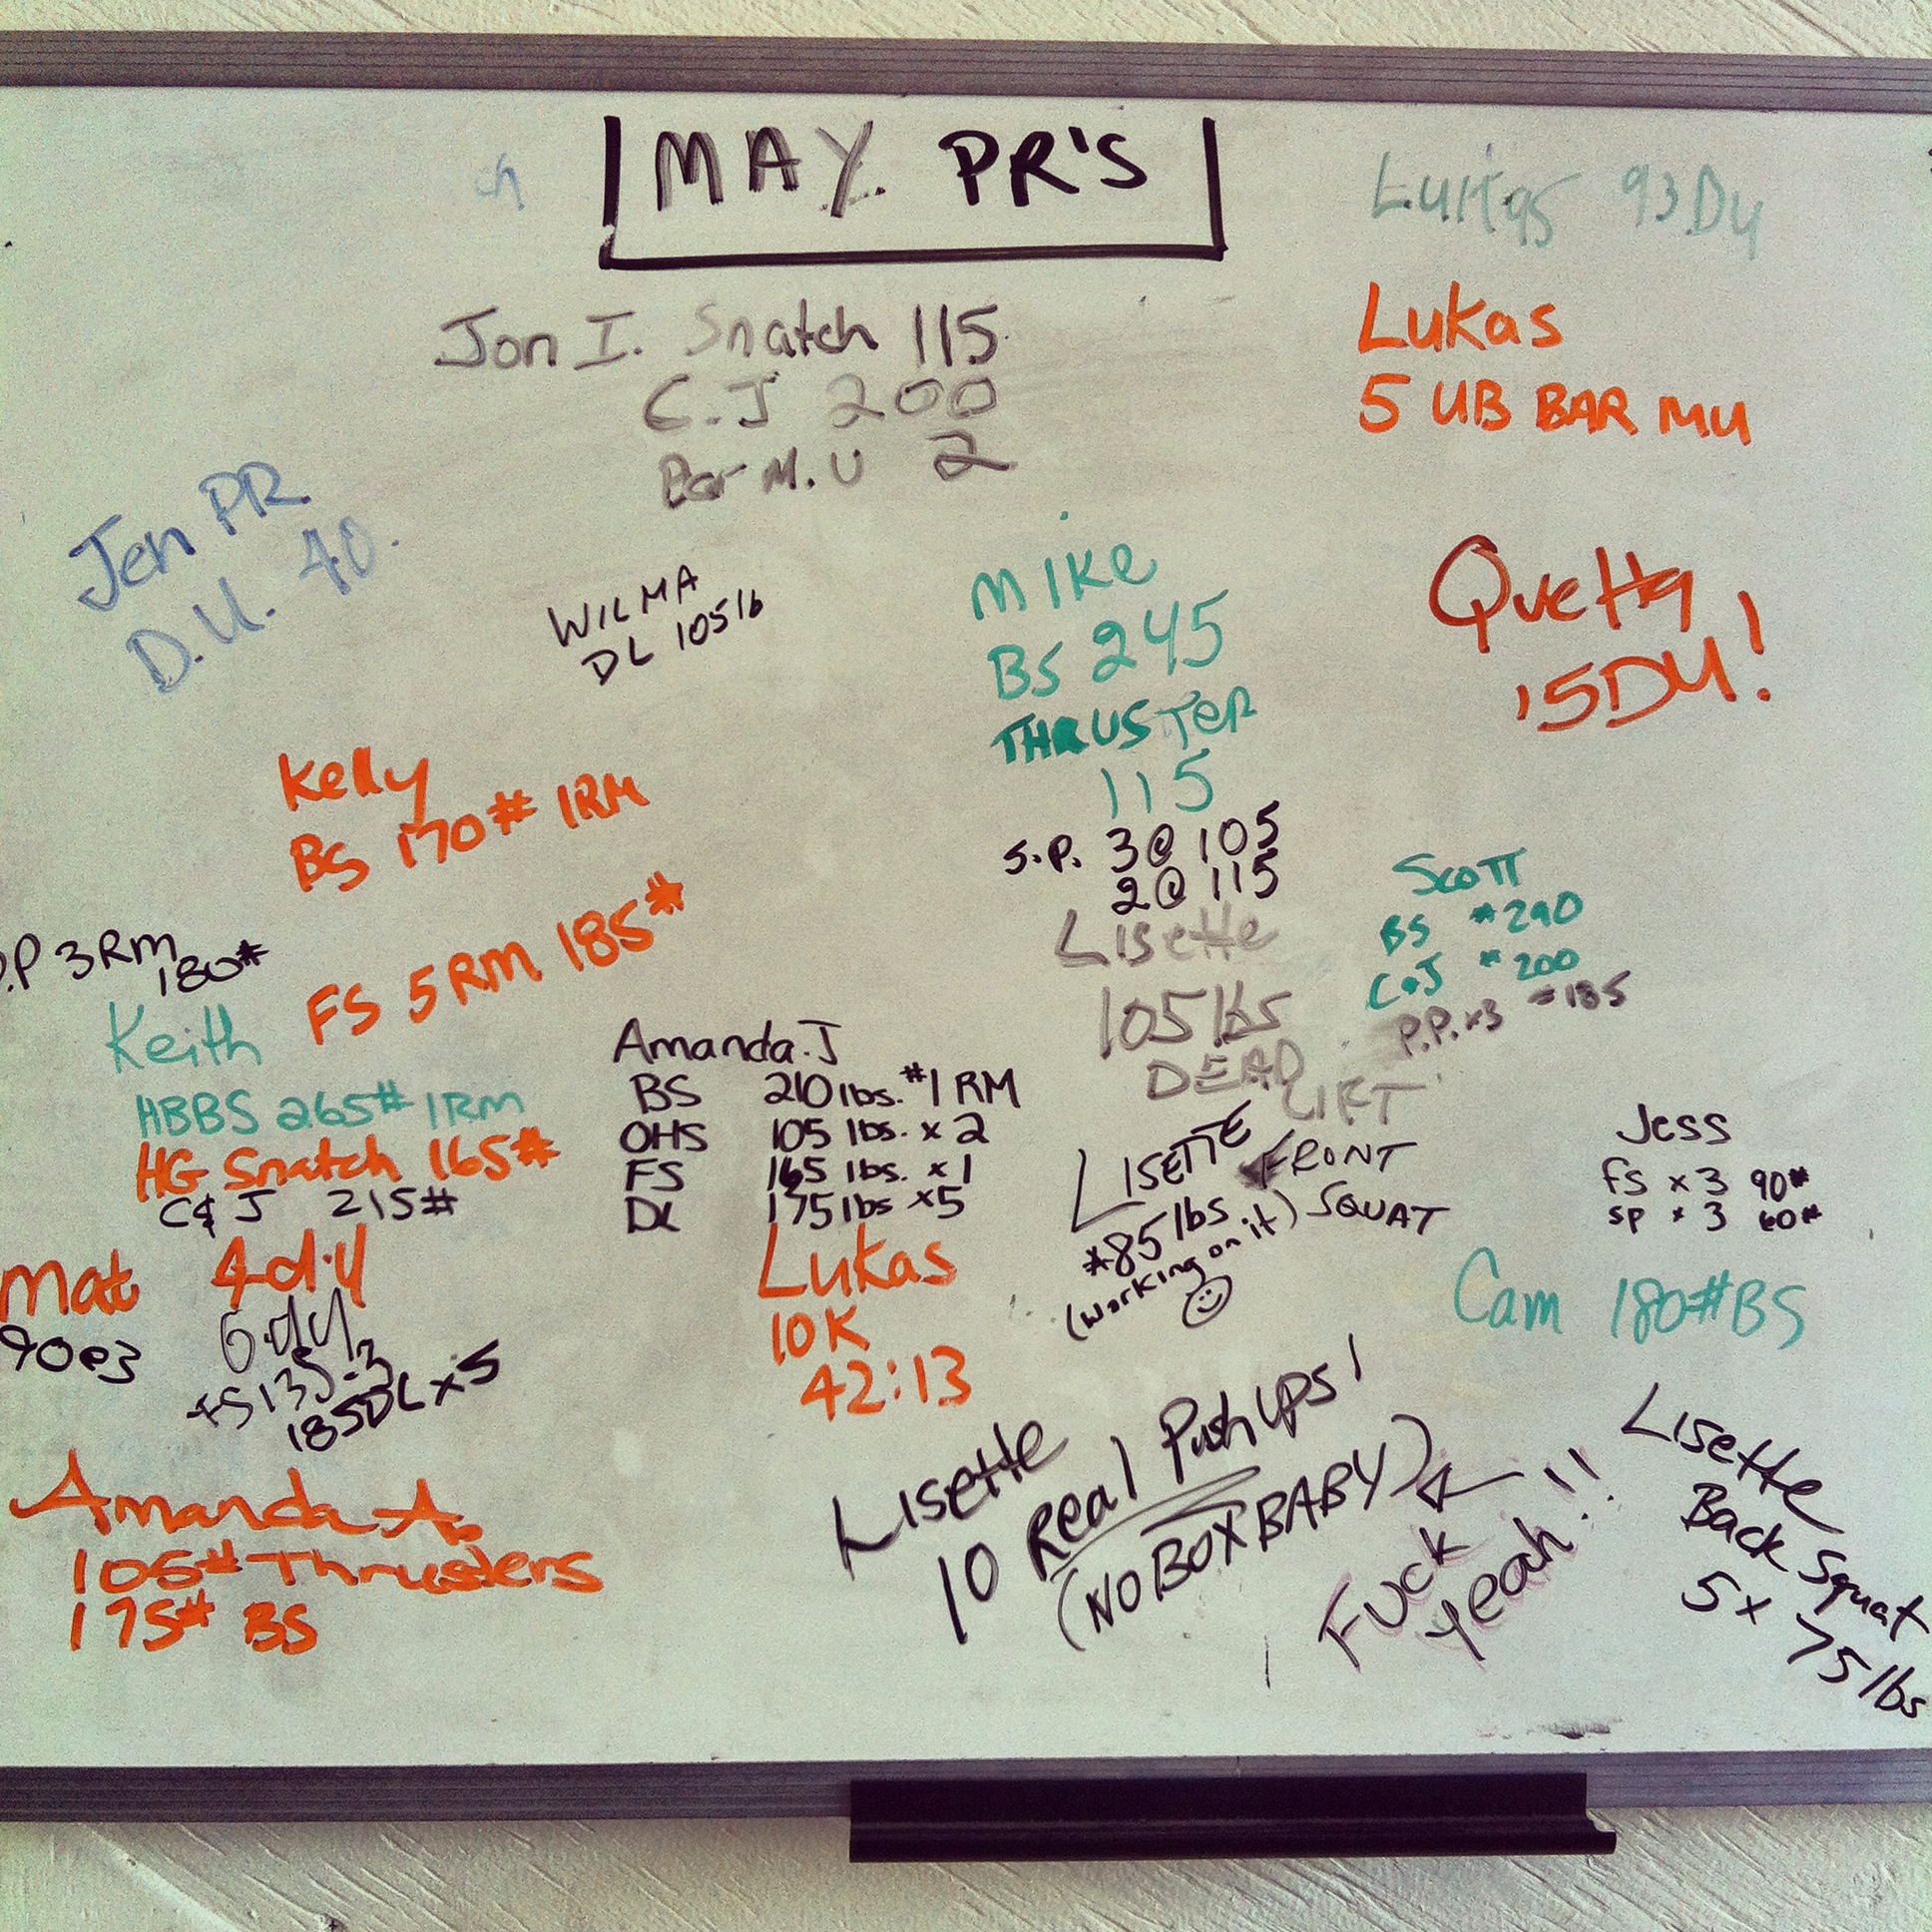 MAY PR'S
Lukas 93DU
Jon I. Snatch 115
C.J 200
Bar M.U 2
Lukas
5 UB BAR MU
Jen PR
D.U. 40.
WILMA
DL 105lb
Mike
BS 245
THRUSTER
115
S.P. 3@ 105
2@ 115
Quetta
15DU!
Kelly
BS 170# 1RM
FS 5RM 185#
.P 3RM
180#
Keith
HBBS 265# 1RM
HG Snatch 165#
C&J 215#
Amanda.J
BS 210 lbs. #1 RM
OHS 105 lbs. x 2
FS 165 lbs. x1
DL 175 lbs x5
Lisette
105 lbs
DEAD LIFT
Scott
BS #290
C&J #200
P.P. x3 =185
LISETTE FRONT
*85 lbs SQUAT
(working on it)
Jess
FS x 3 90#
SP x 3 60#
Cam 180# BS
Mat 4 d.u
90@3 6.du
FS 135-3
185DL x5
Lukas
10K
42:13
Amanda A.
105# Thrusters
175# BS
Lisette
10 Real Push UPS!
(NO BOX BABY)
Fuck
yeah!!
Lisette
Back Squat
5x 75 lbs